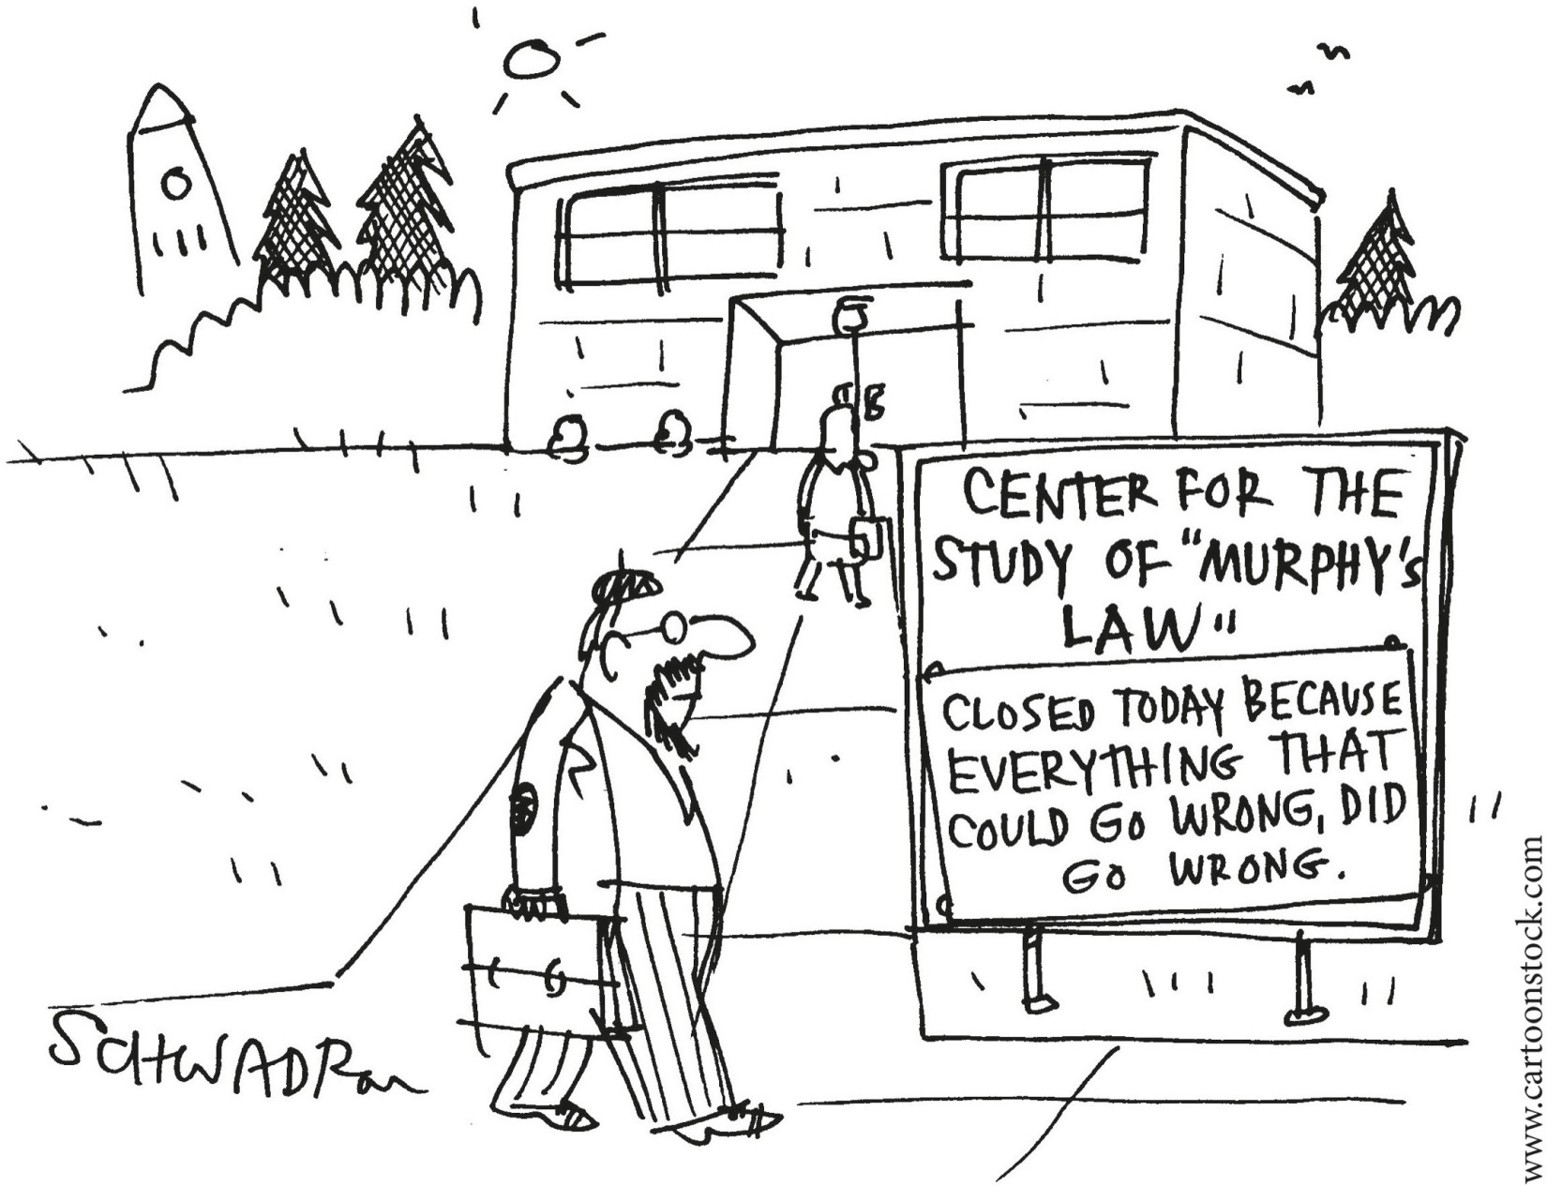 CENTER FOR THE
STUDY OF "MURPHY'S
LAW"
CLOSED TODAY BECAUSE
EVERYTHING THAT
COULD GO WRONG, DID
GO WRONG.
SCHWADRon
www.cartoonstock.com